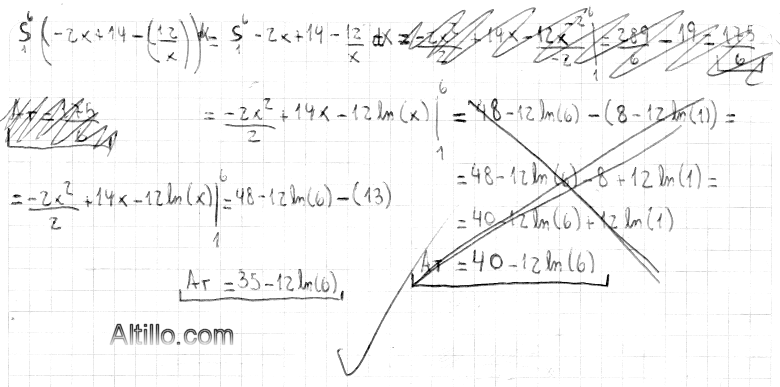 ∫₁⁶ (-2x+14-(12/x)) dx = ∫₁⁶ -2x+14-12/x dx = -2x²/2 + 14x - 12x⁻²/-2 |₁⁶ = 289/6 - 19 = 175/6
Ar = 175/6
= -2x²/2 + 14x - 12 ln(x) |₁⁶ = 48 - 12 ln(6) - (8 - 12 ln(1)) =
= 48 - 12 ln(6) - 8 + 12 ln(1) =
= -2x²/2 + 14x - 12 ln(x) |₁⁶ = 48 - 12 ln(6) - (13)
= 40 - 12 ln(6) + 12 ln(1)
Ar = 40 - 12 ln(6)
Ar = 35 - 12 ln(6)
Altillo.com